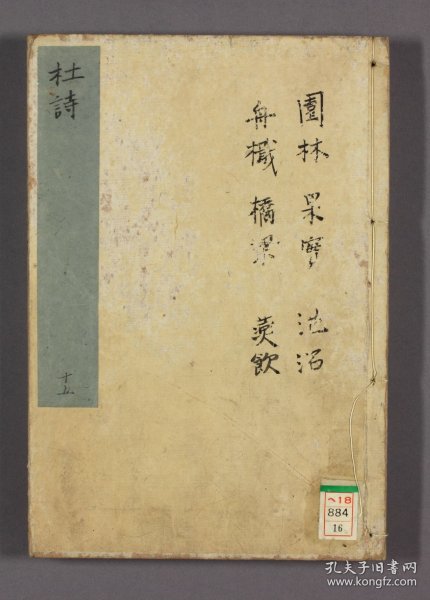 園林 果實 池沼
舟檝 橋梁 燕飲
杜詩
十五
ヘ18
884
16
孔夫子旧书网
www.kongfz.com